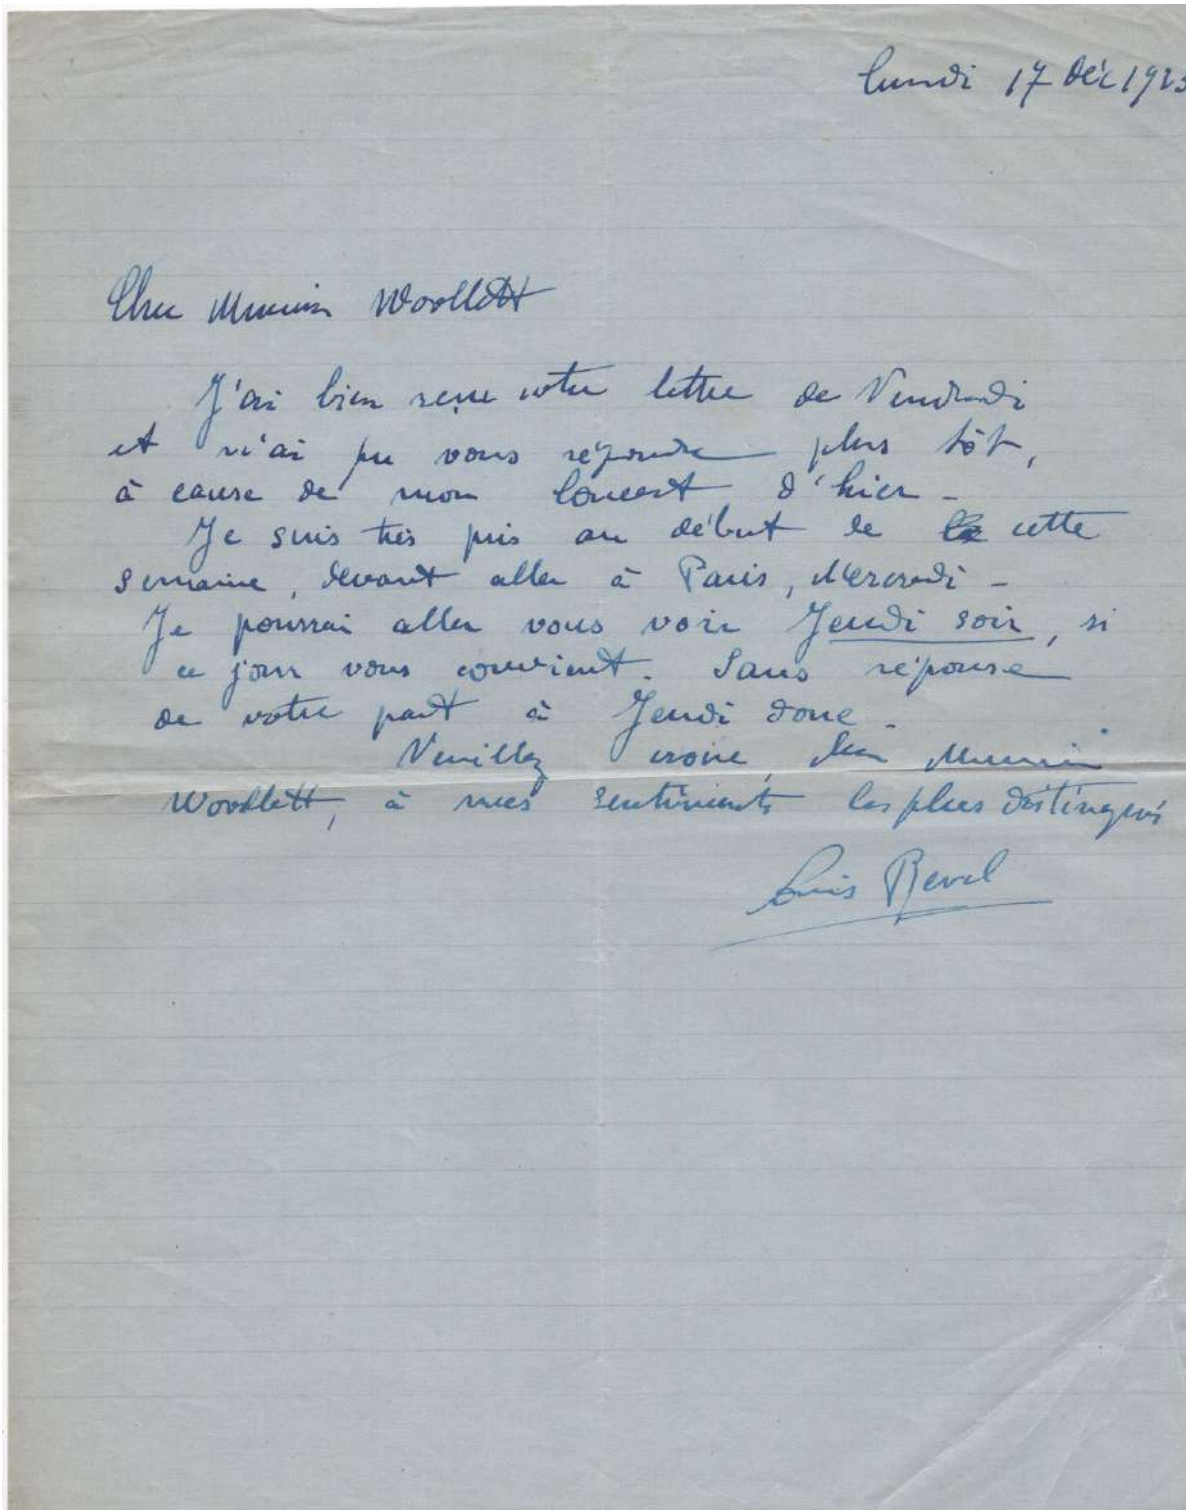 Lundi 17 Déc 1923
Cher Monsieur Woollett
J'ai bien reçu votre lettre de Vendredi
et n'ai pu vous répondre plus tôt,
à cause de mon Concert d'hier -
Je suis très pris au début de cette
semaine, devant aller à Paris, Mercredi -
Je pourrai aller vous voir Jeudi soir, si
ce jour vous convient. Sans réponse
de votre part à Jeudi donc -
Veuillez croire, cher Monsieur
Woollett, à mes sentiments les plus distingués
Louis Revel